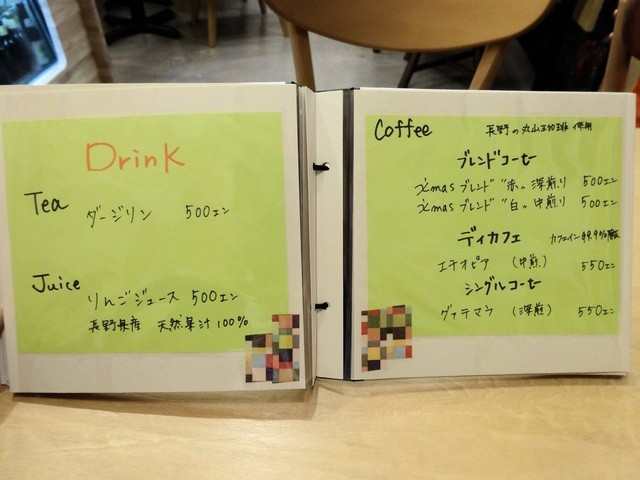 Drink
Tea
ダージリン 500エン
Juice
りんごジュース 500エン
長野県産 天然果汁100%
Coffee
長野の丸山珈琲 使用
ブレンドコーヒー
x'mas ブレンド "赤" 深煎り 500エン
x'mas ブレンド "白" 中煎り 500エン
ディカフェ カフェイン99.9%
エチオピア (中煎) 550エン
シングルコーヒー
グァテマラ (深煎) 550エン